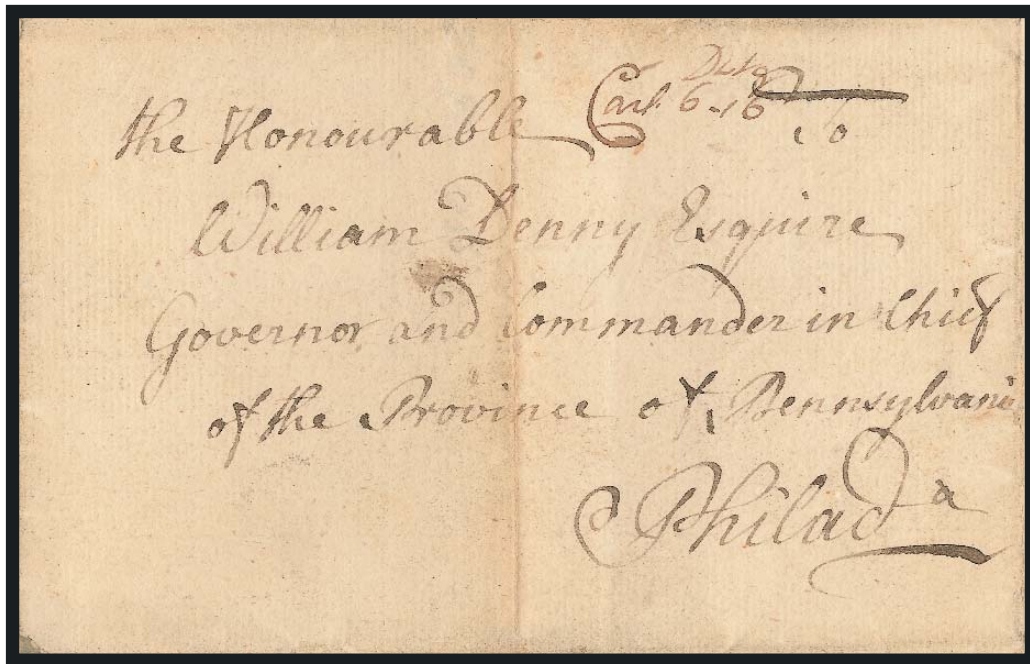 Dwt Gr
Carl. 6 . 16
the Honourable
10
William Denny Esquire
Governor and Commander in Chief
of the Province of Pennsylvania
Philad a